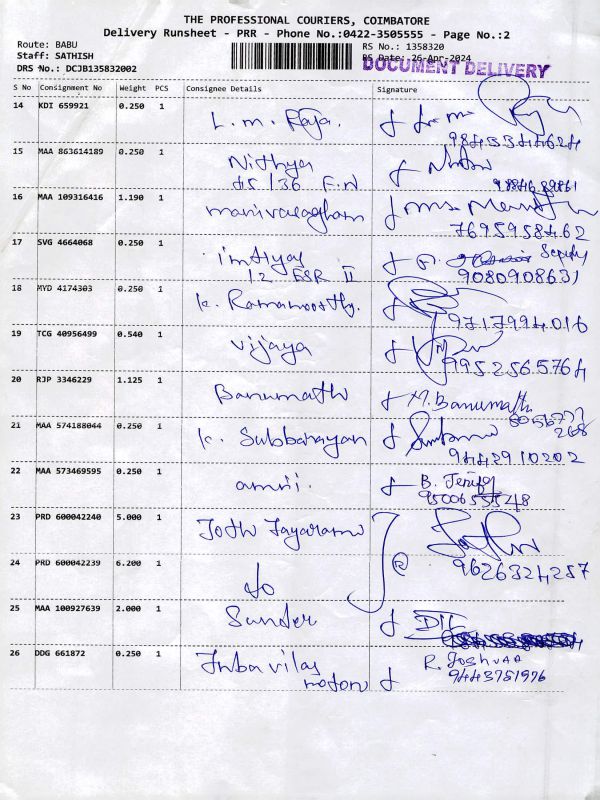 THE PROFESSIONAL COURIERS, COIMBATORE
Delivery Runsheet - PRR - Phone No.:0422-3505555 - Page No.:2
Route: BABU
RS No.: 1358320
Staff: SATHISH
RS Date: 26-Apr-2024
DRS No.: DCJB135832002
DOCUMENT DELIVERY
S No Consignment No Weight PCS Consignee Details Signature
14 KDI 659921 0.250 1
L. m. Raja.
9843344624
15 MAA 863614189 0.250 1
Nithya
45/36 F.N
16 MAA 109316416 1.190 1
manivasagham
7695958462
17 SVG 4664068 0.250 1
imthyas
12 ESR II
9080908631
18 MYD 4174303 0.250 1
K. Ramamoorthy.
9717994016
19 TCG 40956499 0.540 1
Vijaya
9952565764
20 RJP 3346229 1.125 1
Banumathi
M. Banumathi
21 MAA 574188044 0.250 1
K. Subbarayan
9442910202
22 MAA 573469595 0.250 1
B. Jenifer
9500655548
23 PRD 600042240 5.000 1
Joth Jayaram
24 PRD 600042239 6.200 1
do
9626324257
25 MAA 100927639 2.000 1
Sunder
26 DDG 661872 0.250 1
Inbavilas
motors
R. JOSHUAA
9443751976